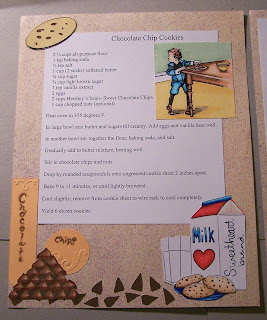 Chocolate Chip Cookies
2 ¼ cups all-purpose flour
1 tsp baking soda
½ tsp salt
1 cup (2 sticks) softened butter
¾ cup sugar
¾ cup light brown sugar
1 tsp vanilla extract
2 eggs
2 cups Hershey's Semi-Sweet Chocolate Chips
1 cup chopped nuts (optional)
Heat oven to 375 degrees F.
In large bowl mix butter and sugars till creamy. Add eggs and vanilla, beat well.
In another bowl stir together the flour, baking soda, and salt.
Gradually add to butter mixture, beating well.
Stir in chocolate chips and nuts.
Drop by rounded teaspoonfuls onto ungreased cookie sheet 2 inches apart.
Bake 9 to 11 minutes, or until lightly browned.
Cool slightly, remove from cookie sheet to wire rack, to cool completely.
Yield 6 dozen cookies
Chocolate
Chips
Milk
Sweetheart
brand